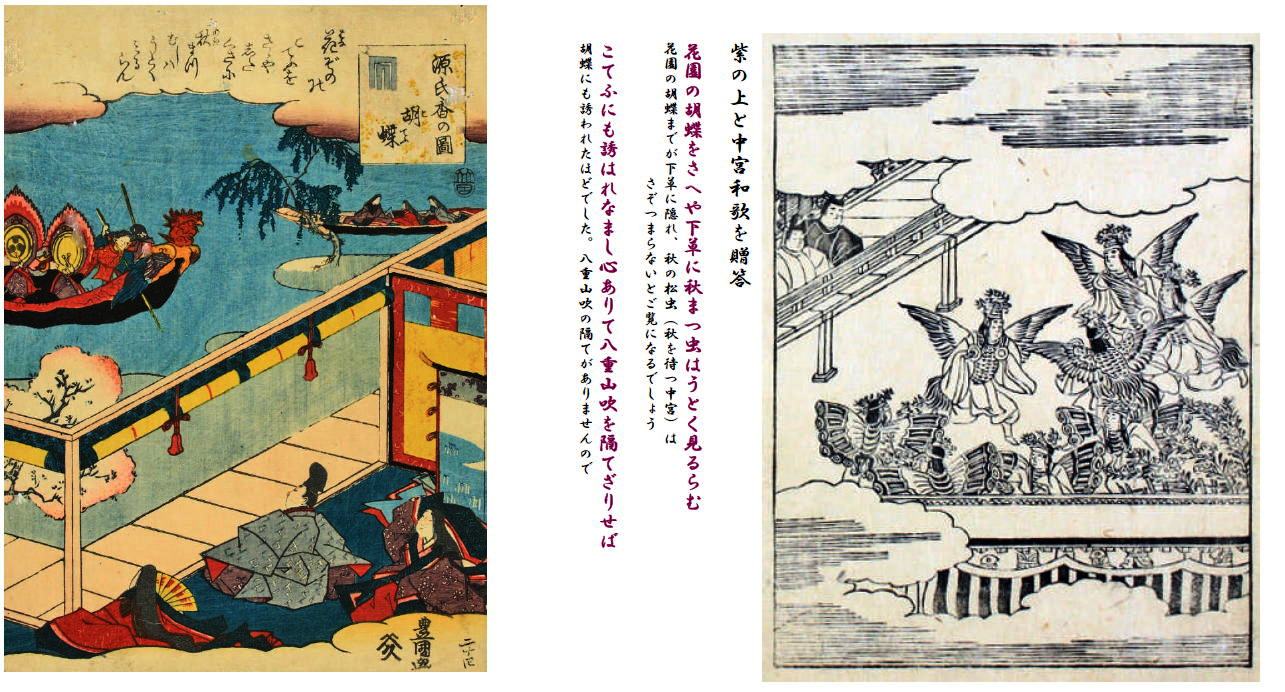 紫の上と中宮和歌を贈答
花園の胡蝶をさへや下草に秋まつ虫はうとく見るらむ
花園の胡蝶までが下草に隠れ、秋の松虫（秋を待つ中宮）は
さぞつまらないとご覧になるでしょう
こてふにも誘はれなまし心ありて八重山吹を隔てざりせば
胡蝶にも誘われたほどでした。八重山吹の隔てがありませんので
源氏香の圖
胡蝶
こてふ
花ぞのの
こてふを
さへや
下た
くさに
秋
まつ
むしハ
うとく
みるらん
豊國画
二十四